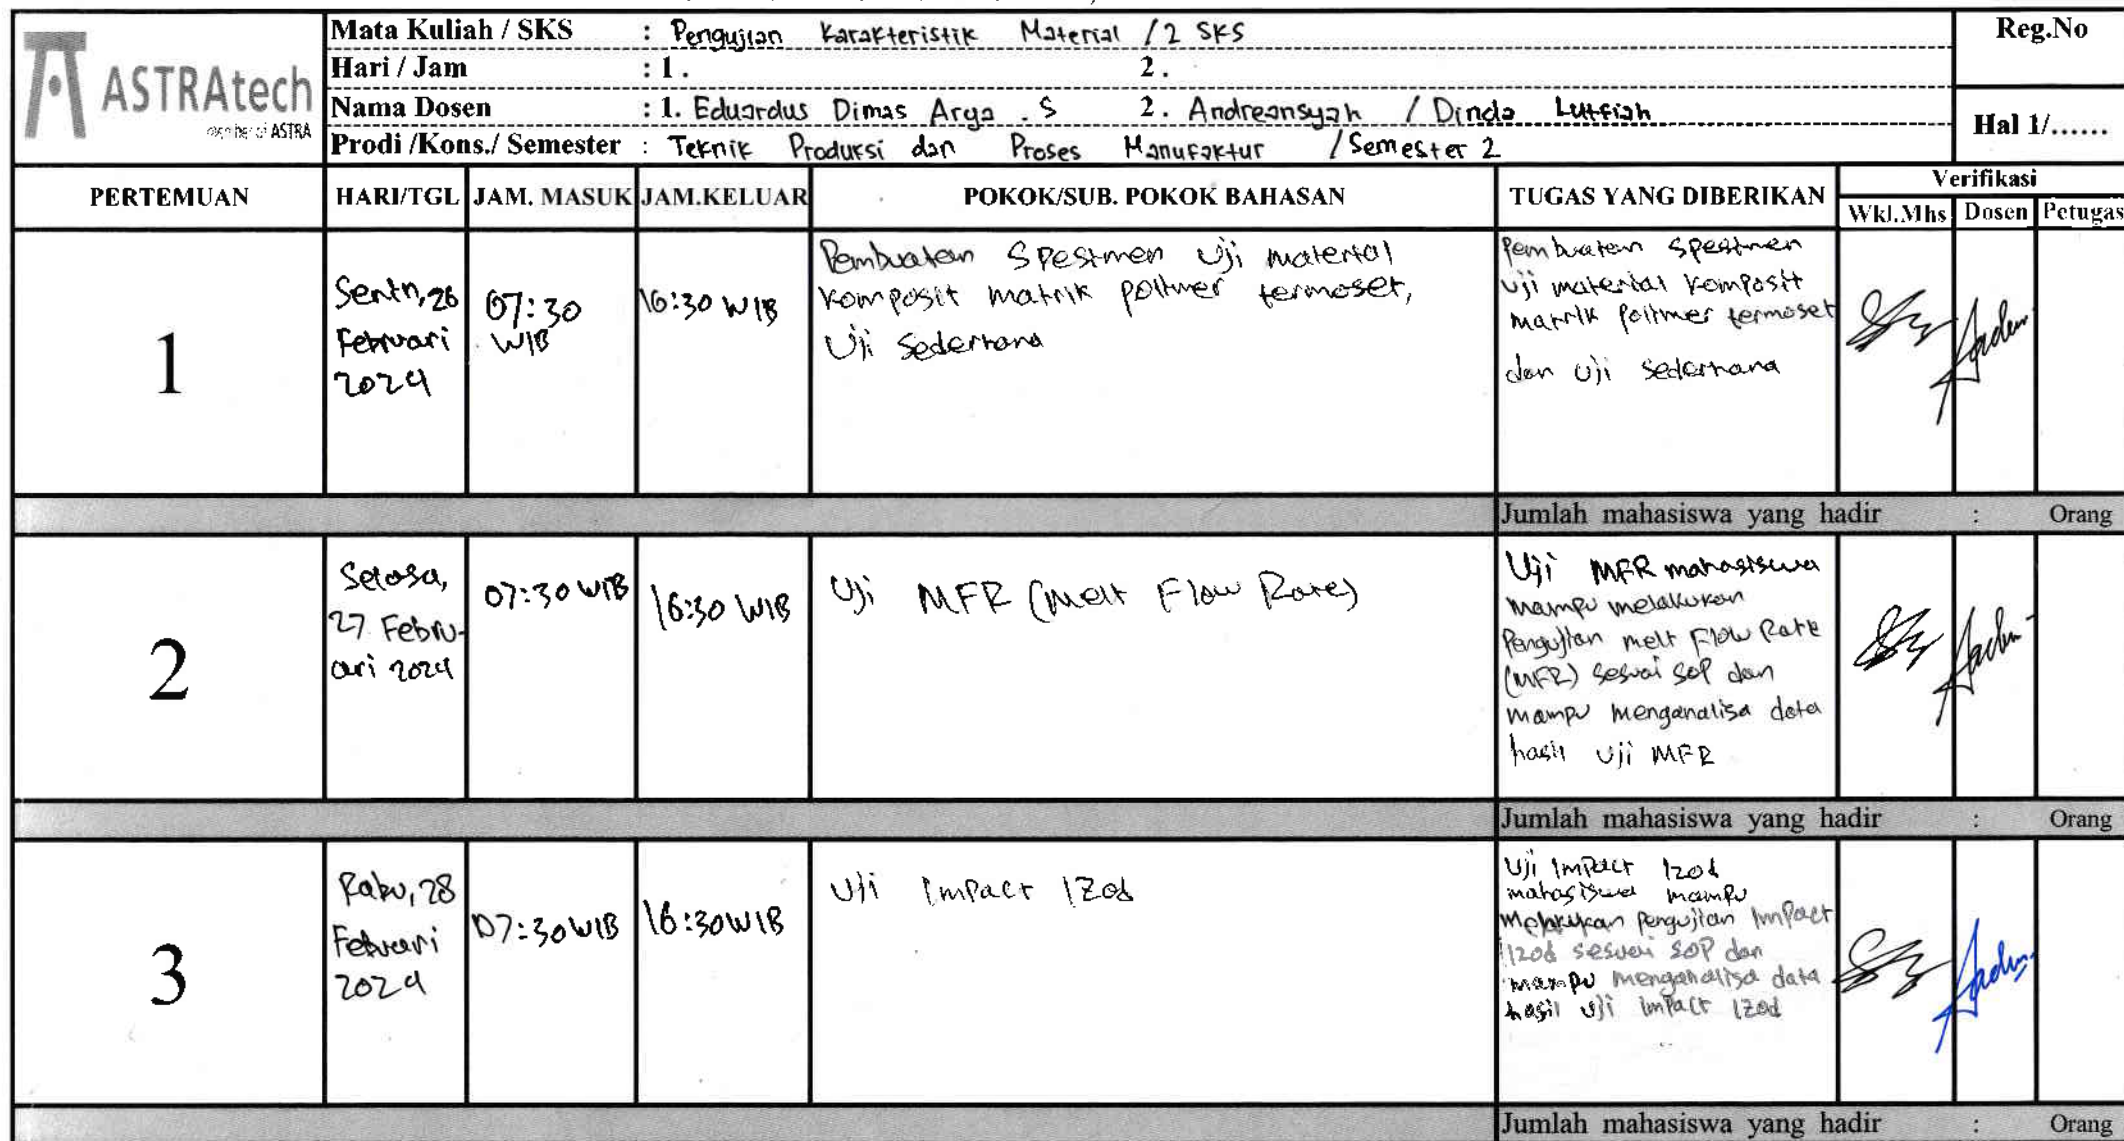 ASTRAtech
member of ASTRA
Mata Kuliah / SKS : Pengujian Karakteristik Material / 2 SKS
Hari / Jam : 1. 2.
Nama Dosen : 1. Eduardus Dimas Arya . S 2. Andreansyah / Dinda Lutfiah
Prodi /Kons./ Semester : Teknik Produksi dan Proses Manufaktur / Semester 2
Reg.No
Hal 1/......
PERTEMUAN HARI/TGL JAM. MASUK JAM.KELUAR POKOK/SUB. POKOK BAHASAN TUGAS YANG DIBERIKAN Verifikasi
Wkl.Mhs Dosen Petugas
1
Senin, 26
Februari
2024
07:30
WIB
16:30 WIB
Pembuatan Spesimen Uji material
komposit matrik polimer termoset,
Uji Sederhana
Pembuatan spesimen
uji material komposit
matrik polimer termoset
dan uji sederhana
Jumlah mahasiswa yang hadir : Orang
2
Selasa,
27 Febru-
ari 2024
07:30 WIB
16:30 WIB
Uji MFR (Melt Flow Rate)
Uji MFR mahasiswa
mampu melakukan
Pengujian melt Flow Rate
(MFR) sesuai SOP dan
mampu menganalisa data
hasil uji MFR
Jumlah mahasiswa yang hadir : Orang
3
Rabu, 28
Februari
2024
07:30 WIB
16:30 WIB
Uji Impact Izod
Uji Impact Izod
mahasiswa mampu
Melakukan pengujian Impact
Izod sesuai SOP dan
mampu menganalisa data
hasil uji impact Izod
Jumlah mahasiswa yang hadir : Orang